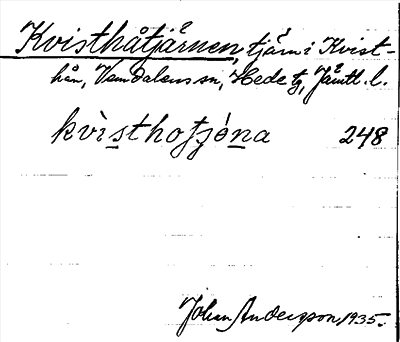 Kvisthåtjärnen, tjärn i Kvist-
hån, Vemdalens sn, Hede tg, Jämtl. l.
kvìsthotjǿna 248
Johan Anderson 1935.